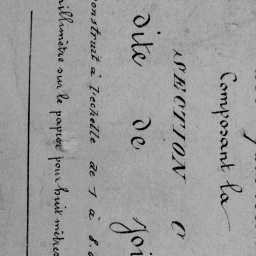 Composant la
SECTION C
dite de Joi
construit à l'échelle de 1 à 8.
millimètre sur le papier pour huit mètres